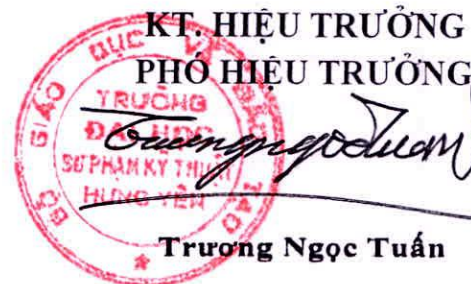 KT. HIỆU TRƯỞNG
PHÓ HIỆU TRƯỞNG
BỘ GIÁO DỤC VÀ ĐÀO TẠO
TRƯỜNG
ĐẠI HỌC
SƯ PHẠM KỸ THUẬT
HƯNG YÊN
Trương Ngọc Tuấn